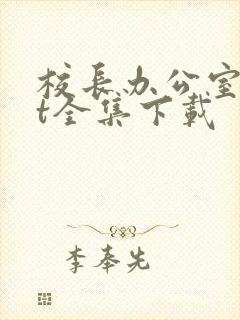 校长办公室
t全集下载
李奉先